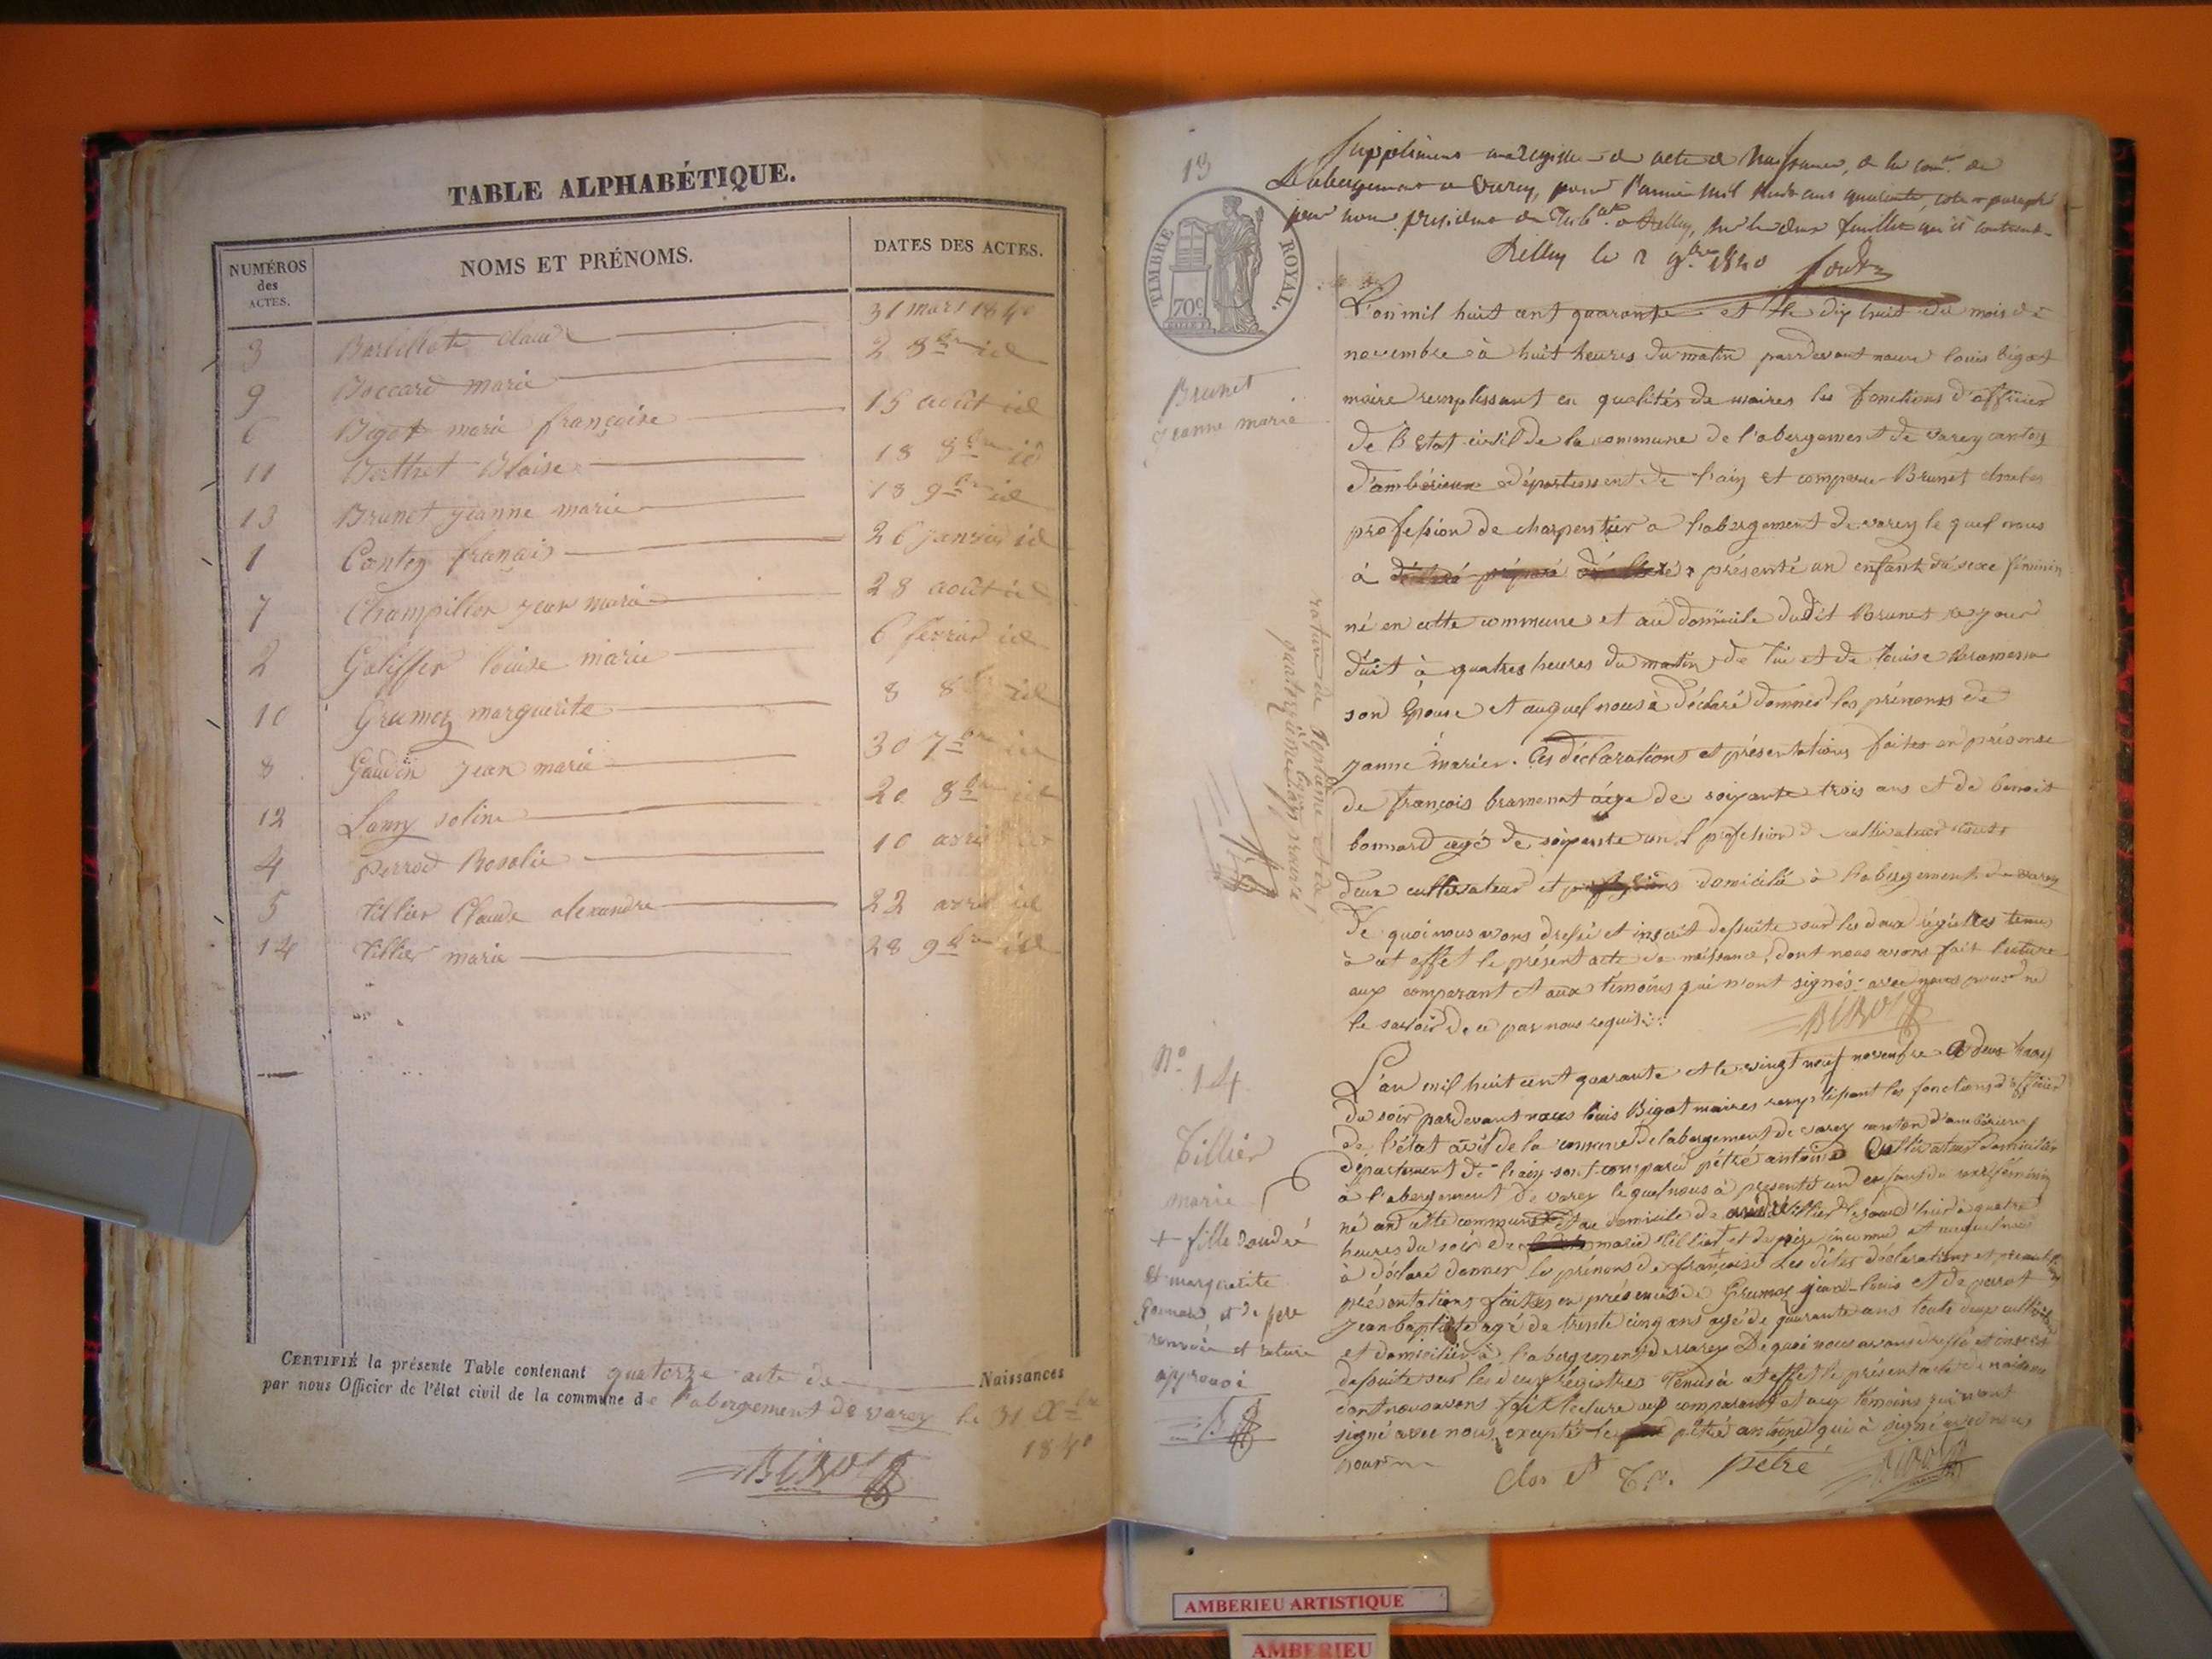 TABLE ALPHABÉTIQUE.
NUMÉROS des ACTES.
NOMS ET PRÉNOMS.
DATES DES ACTES.
3 Barbillot Claude 31 mars 1840
9 Boccard marie 2 8bre id
6 Bigot marie françoise 15 août id
11 Berthet Blaise 18 8bre id
13 Brunet jeanne marie 18 9bre id
1 Contey françois 26 janvier id
7 Champillon jean marie 28 août id
2 Galiffer louise marie 6 février id
10 Grumoz marguerite 8 8bre id
8 Gaudin jean marie 30 7bre id
12 Lamy soline 20 8bre id
4 perrod Rosalie 10 avril id
5 tillier Claude alexandre 22 avril id
14 tillier marie 28 9bre id
CERTIFIÉ la présente Table contenant quatorze acte de Naissances
par nous Officier de l'état civil de la commune de l'abergement de varey le 31 Xbre
1840
BIGOT
13
Supplément au Registre de acte de Naissance, de la comne de
L'abergement de Varey, pour l'année mil huit cent quarante, coté et paraphé
par nous président du Tribal de Belley, sur les deux feuillets qu'il contient
Belley le 2 9bre 1840
TIMBRE ROYAL.
70c
Brunet
jeanne marie
L'an mil huit cent quarante et le dix huit du mois de
novembre à huit heures du matin pardevant nous louis bigot
maire remplissant en qualités de maires les fonctions d'officier
de l'Etat civil de la commune de l'abergement de varey canton
d'ambérieux département de l'ain et comparu Brunet charles
profession de charpentier a l'abergement de varey le quel nous
à présenté un enfant du sexe féminin
né en cette commune et au domicile dudit Brunet ce jour
duit à quatres heures du matin de lui et de louise Bramenat
son Epouse et auquel nous à déclaré donner les prénoms de
janne marier. Ces déclarations et présentations faites en présense
de françois bramenat âge de soixante trois ans et de benoit
bonnard agé de soixante un profession de cultivateur touts
deux cultivateur et domicilié à l'abergement de varey
De quoi nous avons dressé et inscrit dessuite sur les deux régistres tenu
à cet effet le présent acte de naissance, dont nous avons fait lecture
aux comparant et aux témoins qui n'ont signés avec nous pour ne
le savoir de ce par nous requis.
BIGOT
rature de septième et de
quatrzième ligne approuvé
No 14
Tillier
marie
+ fille dandré
et marguerite
et de père
renvoie et rature
approuvé
L'an mil huit cent quarante et le vingt neuf novembre à deux heures
du soir pardevant nous louis Bigot maires remplissant les fonctions d'officier
de l'état civil de la commune de labergement de varey canton d'ambérieux
département de l'ain sont comparu pétré antoine Cultivateur domicilier
à l'abergement de varey le quel nous à présenté und enfant du sexe féminin
né and cette commune et au domicile de andré tillier le jour d'hier à quatre
heures du soir de marie tilliet et de père inconnu et auquel nous
à déclaré donner le prénoms de françoise Les dites déclarations et
présentations faites en présences de Grumoz jean-louis et de perrot
jean baptiste agé de trente cinq ans agé de quarante ans touts deux cultiv
et domicilier à l'abergement de varey De quoi nous avons dressé et inscrit
dessuite sur les deux régistres tenus à cet effet le présent acte de naissance
dont nous avons fait lecture aux comparant et aux témoins qui n'ont
signé avec nous excepté le pétré antoine qui à signé avec nous
pour ne
pétré
BIGOT
AMBERIEU ARTISTIQUE
AMBERIEU